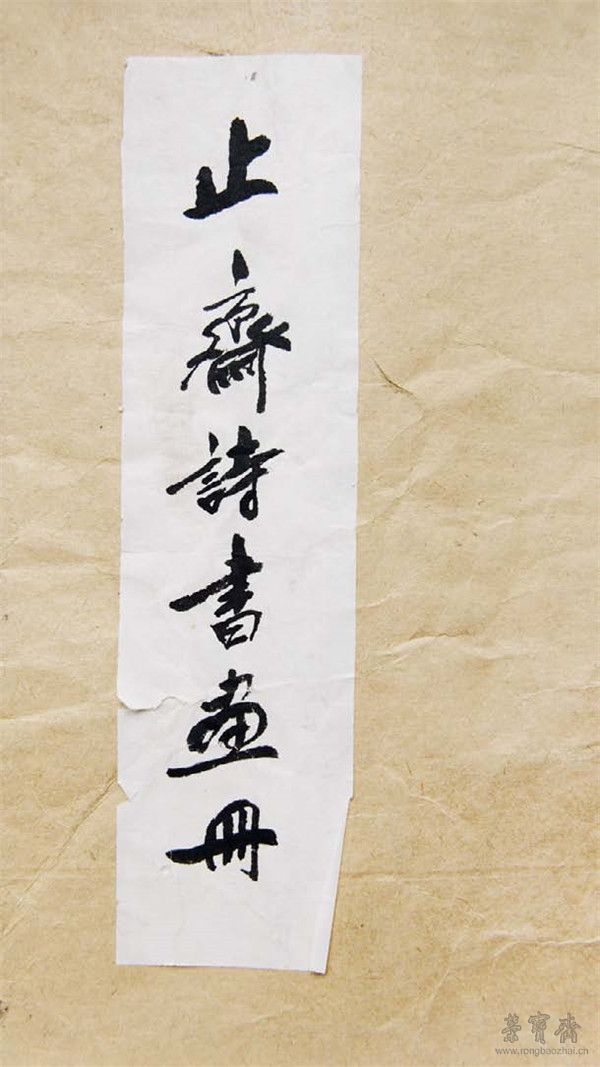 止齋詩書畫冊
榮寶齋
www.rongbaozhai.cn